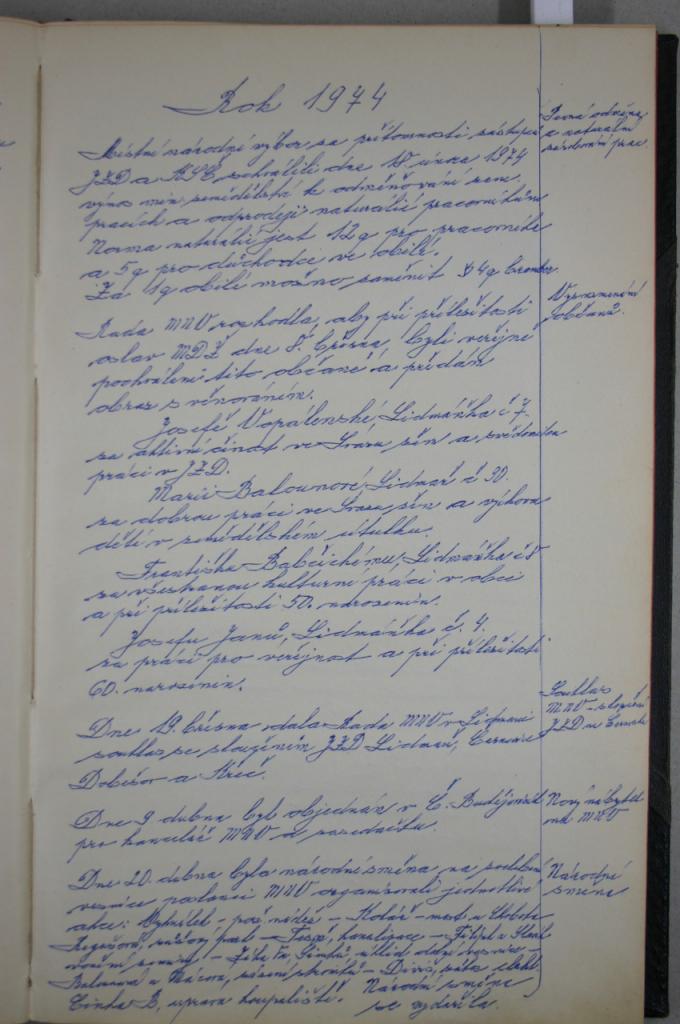 Rok 1974
Místní národní výbor za přítomnosti zástupců
JZD a KSČ schválili dne 18 února 1974
výnos min. zemědělství k odměňování zem.
pracích a odprodeji naturálií pracovníkům
Norma naturálií jest 12 q pro pracovníka
a 5 q pro důchodce ve obilí.
Za 1q obilí možno zaměnit 4q brambor
Rada MNV rozhodla, aby při příležitosti
oslav MDŽ dne 8. března, byli veřejně
pochváleni tito občané a předán
obraz s věnováním.
Josefě Vopálenské, Lidmaňka č 7.
za aktivní činost ve Svazu žen a svědomitou
práci v JZD.
Marii Balounové, Lidmaň č 30.
za dobrou práci ve Svazu žen a výchovu
dětí v zemědělském útulku.
Františku Babčickému, Lidmaňka č 8
za všestranou kulturní práci v obci
a při příležitosti 50. narozenin.
Josefu Janů, Lidmaňka č. 4.
za práci pro veřejnost a při příležitosti
60. narozenin.
Dne 19. března dala Rada MNV v Lidmani
souhlas se sloučením JZD Lidmaň, Černovice
Dobešov a Křeč.
Dne 9 dubna byl objednán v Č. Budějovicích
pro kancelář MNV a zasedačku.
Dne 20. dubna byla národní směna na zvelebení
vesnice poslanci MNV organizovali jednotlivé
akce: Vyhnálek - požární nádrž - Kolář - most u Svobodů
kanalizace - Filipl a
úklid dolní vesnice -
Balounová a Mácová, sázení stromků - Diviš,
Činka B, úprava koupaliště. Národní směna
se vydařila.
Pevná odměna
a naturální
zem. prac.
Vyznamenání
občanů.
Souhlas
MNV - sloučení
JZD Černovice
Nový nábytek
na MNV
Národní
směna